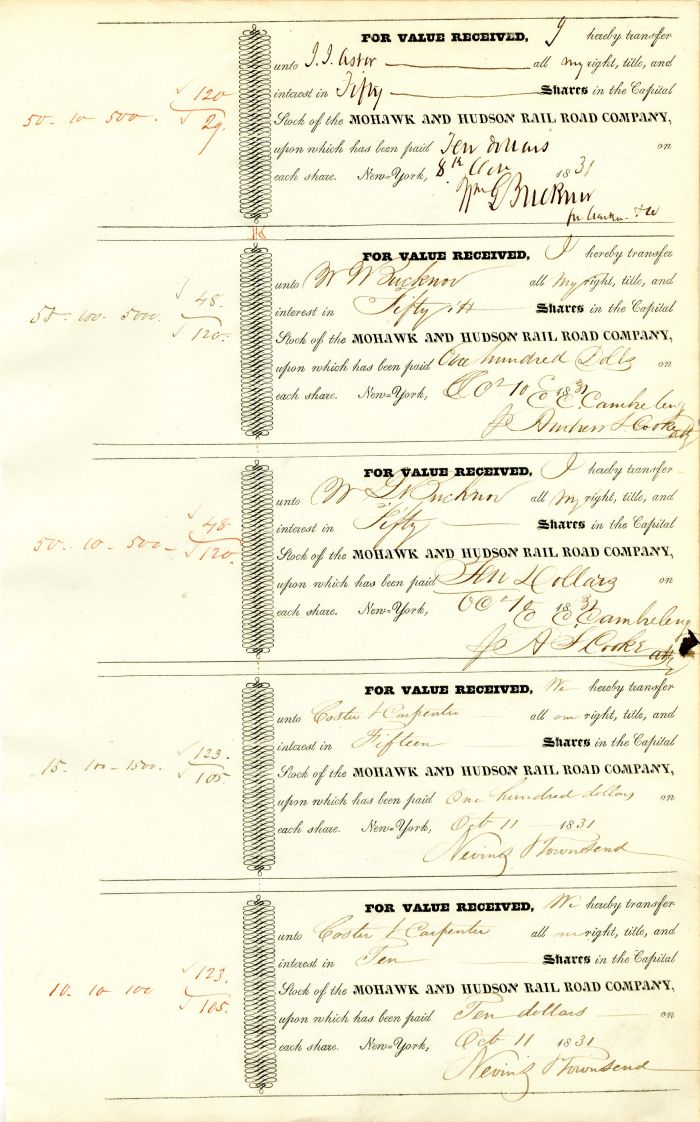 FOR VALUE RECEIVED, I hereby transfer
unto J. J. Astor all my right, title, and
interest in Fifty Shares in the Capital
50 - 10 - 500 - 120
29.
Stock of the MOHAWK AND HUDSON RAIL ROAD COMPANY,
upon which has been paid Ten dollars on
each share. New=York, 8th 1831
Wm G Buckner
for
FOR VALUE RECEIVED, I hereby transfer
unto W Bucknor all my right, title, and
interest in Fifty Shares in the Capital
50 - 100 - 5000 - 48.
120.
Stock of the MOHAWK AND HUDSON RAIL ROAD COMPANY,
upon which has been paid One hundred Dolls on
each share. New=York, Oct 10 1831
E Cambeleng
p Andrew S. Cooke atty
FOR VALUE RECEIVED, I hereby transfer
unto W G Bucknor all my right, title, and
interest in Fifty Shares in the Capital
50 - 10 - 500 - 48
120.
Stock of the MOHAWK AND HUDSON RAIL ROAD COMPANY,
upon which has been paid Ten Dollars on
each share. New=York, Oct 10 1831
E Cambeleng
p A S Cooke atty
FOR VALUE RECEIVED, We hereby transfer
unto Coster & Carpenter all our right, title, and
interest in Fifteen Shares in the Capital
15 - 100 - 1500 - 123.
105.
Stock of the MOHAWK AND HUDSON RAIL ROAD COMPANY,
upon which has been paid One hundred dollars on
each share. New=York, Oct 11 1831
Nevins & Townsend
FOR VALUE RECEIVED, We hereby transfer
unto Coster & Carpenter all our right, title, and
interest in Ten Shares in the Capital
10 - 10 - 100 123.
105.
Stock of the MOHAWK AND HUDSON RAIL ROAD COMPANY,
upon which has been paid Ten dollars on
each share. New=York, Oct 11 1831
Nevins & Townsend